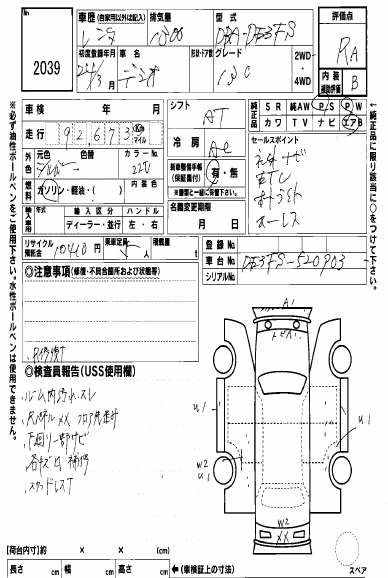 No.
2039
車歴(自家用以外は記入)
レンタ
排気量
1300
型式
DBA-DE3FS
初度登録年月
24/3
車名
デミオ
形状・ドア数
グレード
13C
2WD・4WD
評価点
RA
内装
補助評価
B
車検 年 月
走行
92673
Km
マイル
シフト
AT
冷房
AC
純正品
SR 純AW PS PW
カワ TV ナビ エアB
元色
シルバー
色替
カラーNo.
22V
燃料
ガソリン・軽油・( )
内装色
輸入車用
年式
輸入区分
ハンドル
ディーラー・並行
左・右
新車整備手帳
(保証書付)
有・無
※書類と一緒に保管下さい。
名義変更期限
月 日
セールスポイント
ETC
キーレス
リサイクル預託金
10410円
乗車定員
5人
積載量
t
登録No.
車台No.
DE3FS-520903
シリアルNo.
◎注意事項(修復・不具合箇所および状態等)
R修復T
◎検査員報告(USS使用欄)
ルーム内汚れ スレ
下廻り一部サビ
各キズ凹 補修
スタッドレスT
A1
U1
U1
W2
U1
W2
XX
スペア
【荷台内寸】約 × × (cm)
長さ cm 幅 cm 高さ cm
←(車検証上の寸法)
※必ず油性ボールペンをご使用下さい。水性ボールペンは使用できません。
純正品に限り該当に○をつけて下さい。